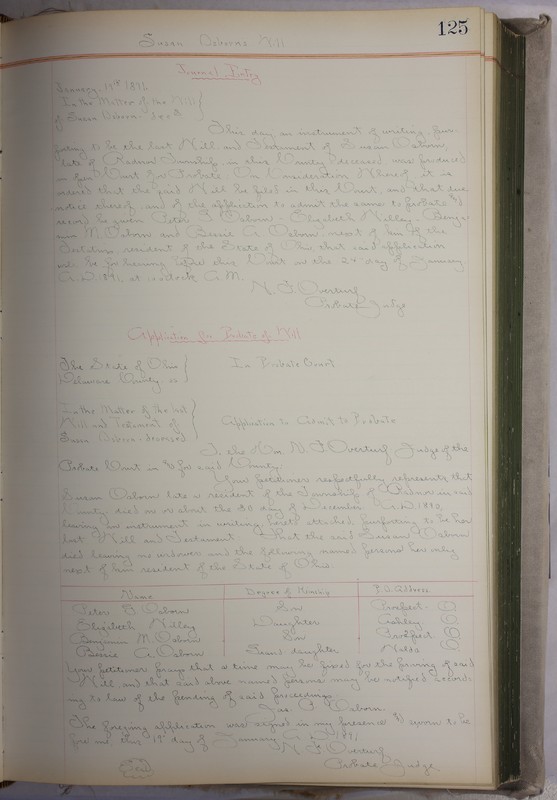 125
Susan Osborn Will
Journal Entry
January 1891
In the Matter of the Will
of Susan Osborn dec'd
This day an instrument of writing, pur-
porting to be the last Will and Testament of Susan Osborn
late of Radnor Township in this County deceased was produced
in open Court for Probate. On Consideration Whereof, it is
ordered that the said Will be filed in this Court, and that due
notice thereof, and of the application to admit the same to probate &
record be given Peter Osborn, Elizabeth Benja-
min M. Osborn and Bessie A. Osborn next of kin of the
Testatrix, resident of the State of Ohio that said application
will be for hearing before this Court on the day of January
A.D. 1891, at o'clock A.M.
N. F. Overturf
Probate Judge
Application for Probate of Will
The State of Ohio
Delaware County ss
In Probate Court
In the Matter of the Will
Will and Testament of
Susan Osborn deceased
Application to Admit to Probate
To the Hon N. F. Overturf Judge of the
Probate Court in & for said County:
Your petitioner respectfully represents that
Susan Osborn late a resident of the Township of Radnor in said
County died on or about the 30 day of December A.D. 1890
leaving an instrument in writing, hereto attached purporting to be her
last Will and Testament. That the said Susan Osborn
died leaving no widower and the following named persons her only
next of kin resident of the State of Ohio.
Name Degree of Kinship P.O. Address
Peter Osborn Son Prospect O
Elizabeth Daughter Ashley O
Benjamin M. Osborn Son Prospect O
Bessie A. Osborn Grand daughter Waldo O
Your petitioner prays that a time may be fixed for the proving of said
Will, and that said above named persons may be notified accord-
ing to law of the pending of said proceedings.
Jas. Osborn.
The foregoing application was signed in my presence & sworn to be-
fore me this day of January A.D. 1891
N. F. Overturf
Probate Judge
Seal